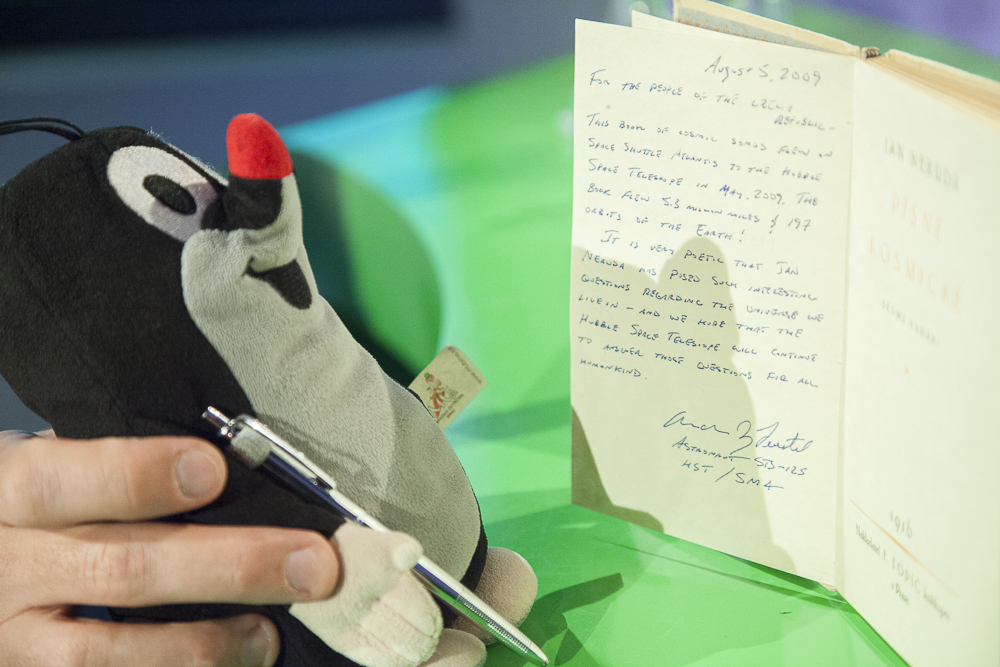 August 5, 2009
FOR THE PEOPLE OF THE CZECH
REPUBLIC -
THIS BOOK OF COSMIC SONGS FLEW ON
SPACE SHUTTLE ATLANTIS TO THE HUBBLE
SPACE TELESCOPE IN MAY, 2009. THE
BOOK FLEW 5.3 MILLION MILES & 197
ORBITS OF THE EARTH!
IT IS VERY POETIC THAT JAN
NERUDA HAS POSED SUCH INTERESTING
QUESTIONS REGARDING THE UNIVERSE WE
LIVE IN - AND WE HOPE THAT THE
HUBBLE SPACE TELESCOPE WILL CONTINUE
TO ANSWER THOSE QUESTIONS FOR ALL
HUMANKIND.
ASTRONAUT STS-125
HST / SM4
JAN NERUDA
PÍSNĚ
KOSMICKÉ
1916
Nakladatel F. TOPIČ knihkupec
v Praze